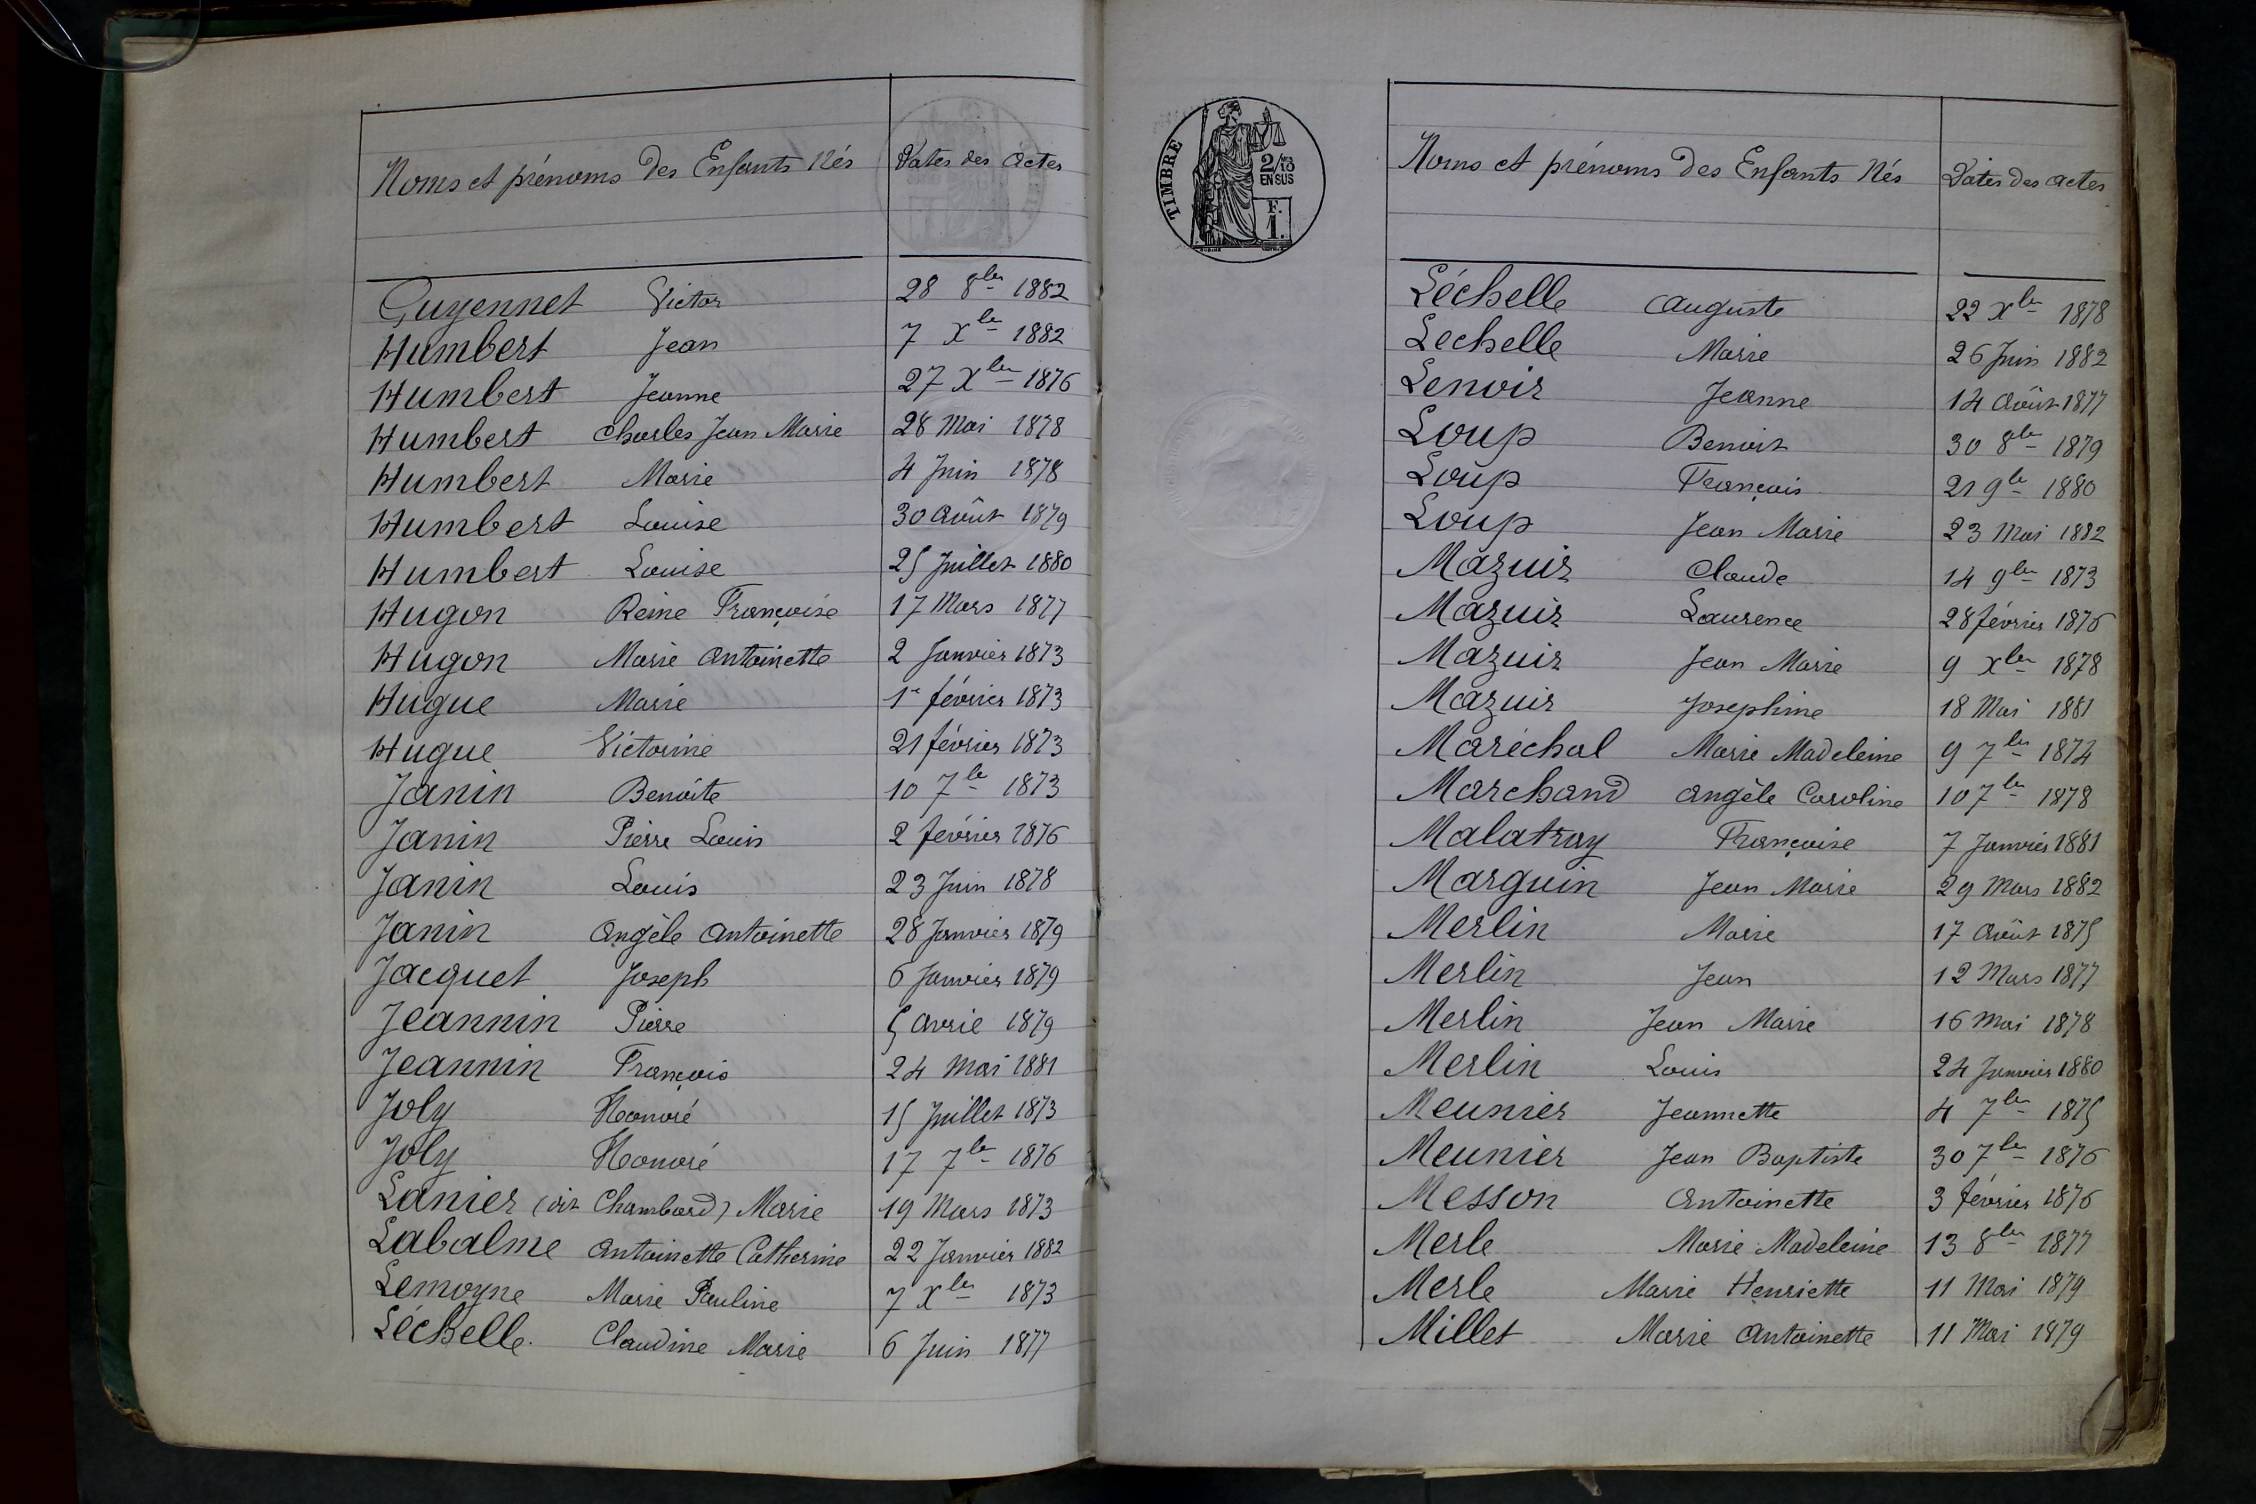 Noms et prénoms des Enfants Nés Dates des actes
Guyennet Victor 28 8bre 1882
Humbert Jean 7 Xbre 1882
Humbert Jeanne 27 Xbre 1876
Humbert Charles Jean Marie 28 Mai 1878
Humbert Marie 4 Juin 1878
Humbert Louise 30 Août 1879
Humbert Louise 25 Juillet 1880
Hugon Reine Françoise 17 Mars 1877
Hugon Marie Antoinette 2 Janvier 1873
Hugue Marie 1er février 1873
Hugue Victorine 21 février 1873
Janin Benoite 10 7bre 1873
Janin Pierre Louis 2 février 1876
Janin Louis 23 Juin 1878
Janin Angèle Antoinette 28 Janvier 1879
Jacquet Joseph 6 Janvier 1879
Jeannin Pierre 5 Avril 1879
Jeannin François 24 Mai 1881
Joly Honoré 15 Juillet 1873
Joly Honoré 17 7bre 1876
Lanier (dit Chambard) Marie 19 Mars 1873
Labalme Antoinette Catherine 22 Janvier 1882
Lemoyne Marie Pauline 7 Xbre 1873
Léchelle Claudine Marie 6 Juin 1877
TIMBRE
2/10
EN SUS
F.
1.
Noms et prénoms des Enfants Nés Dates des actes
Léchelle Auguste 22 Xbre 1878
Lechelle Marie 26 Juin 1882
Lenoir Jeanne 14 Août 1877
Loup Benoit 30 8bre 1879
Loup François 21 9bre 1880
Loup Jean Marie 23 Mai 1882
Mazuir Claude 14 9bre 1873
Mazuir Laurence 28 février 1876
Mazuir Jean Marie 9 Xbre 1878
Mazuir Josephine 18 Mai 1881
Maréchal Marie Madeleine 9 7bre 1874
Marchand Angèle Caroline 10 7bre 1878
Malatray Françoise 7 Janvier 1881
Marguin Jean Marie 29 Mars 1882
Merlin Marie 17 Août 1875
Merlin Jean 12 Mars 1877
Merlin Jean Marie 16 Mai 1878
Merlin Louis 24 Janvier 1880
Meunier Jeannette 4 7bre 1875
Meunier Jean Baptiste 30 7bre 1876
Messon Antoinette 3 février 1876
Merle Marie Madeleine 13 8bre 1877
Merle Marie Henriette 11 Mai 1879
Millet Marie Antoinette 11 Mai 1879